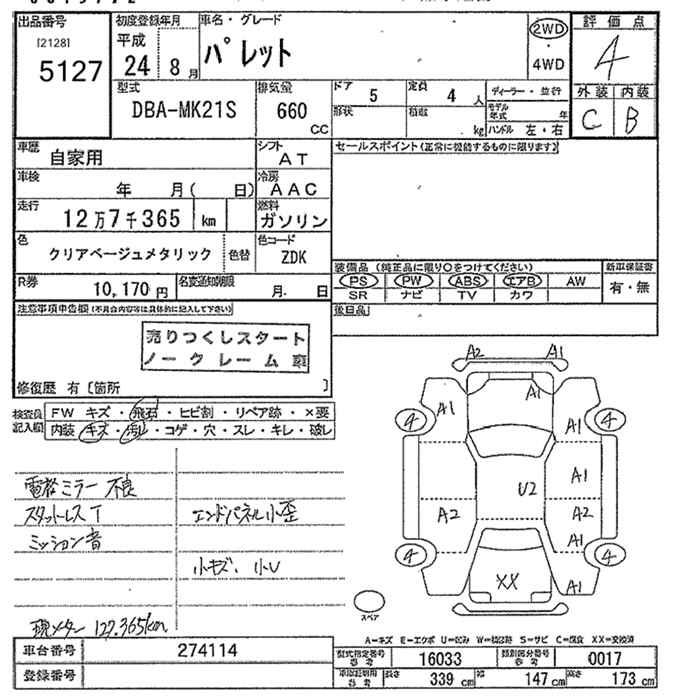 出品番号
[2128]
5127
初度登録年月
平成
24年
8月
車名・グレード
パレット
2WD
・
4WD
評価点
4
外装 内装
C B
型式
DBA-MK21S
排気量
660
CC
ドア
5
定員
4人
形状
積載
kg
ディーラー・並行
モデル年式 年
ハンドル 左・右
車歴
自家用
シフト
AT
車検
年 月( 日)
冷房
AAC
走行
12万7千365 km
燃料
ガソリン
色
クリアベージュメタリック
色替
色コード
ZDK
R券
10,170円
名変通知期限
月 日
セールスポイント(正常に機能するものに限ります)
装備品(純正品に限り○をつけてください)
新車保証書
PS PW ABS エアB AW
SR ナビ TV カワ
有・無
後日品
注意事項申告欄(不具合内容等は具体的に記入して下さい)
売りつくしスタート
ノークレーム車
修復歴 有〔箇所 〕
検査員記入欄
FW キズ・飛石・ヒビ割・リペア跡・×要
内装 キズ・汚れ・コゲ・穴・スレ・キレ・破レ
電格ミラー不良
スタットレスT
ミッション音
エンドパネル小歪
小キズ、小U
現メーター 127.365km
A2 A1
A1 A1
4 A1 4
U2 A1
A2 A2
4 A1 4
XX A1
スペア
A=キズ E=エクボ U=凹み W=補修跡 S=サビ C=腐食 XX=交換済
車台番号
274114
登録番号
型式指定番号
参考
16033
類別区分番号
参考
0017
車庫証明用
参考
長さ
339 cm
幅
147 cm
高さ
173 cm